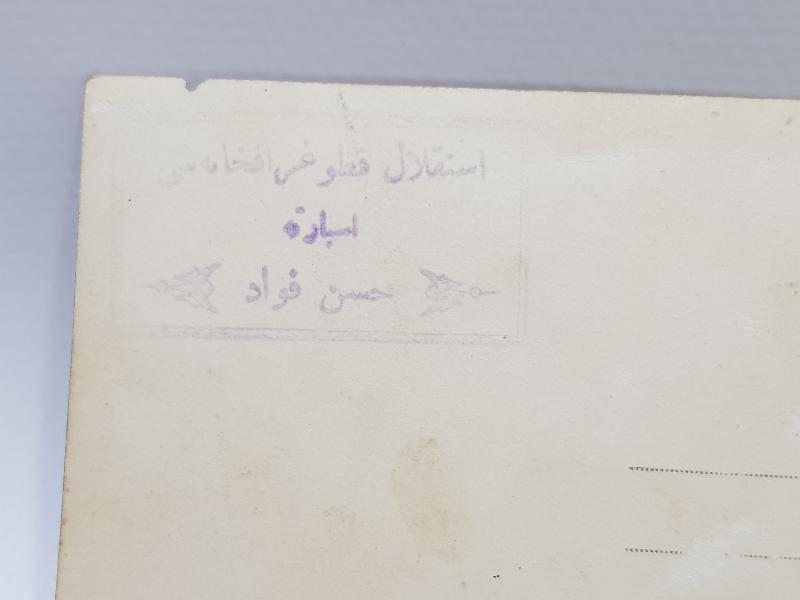 استقلال فطوغرافخانه‌سی
اسپارته
حسن فواد